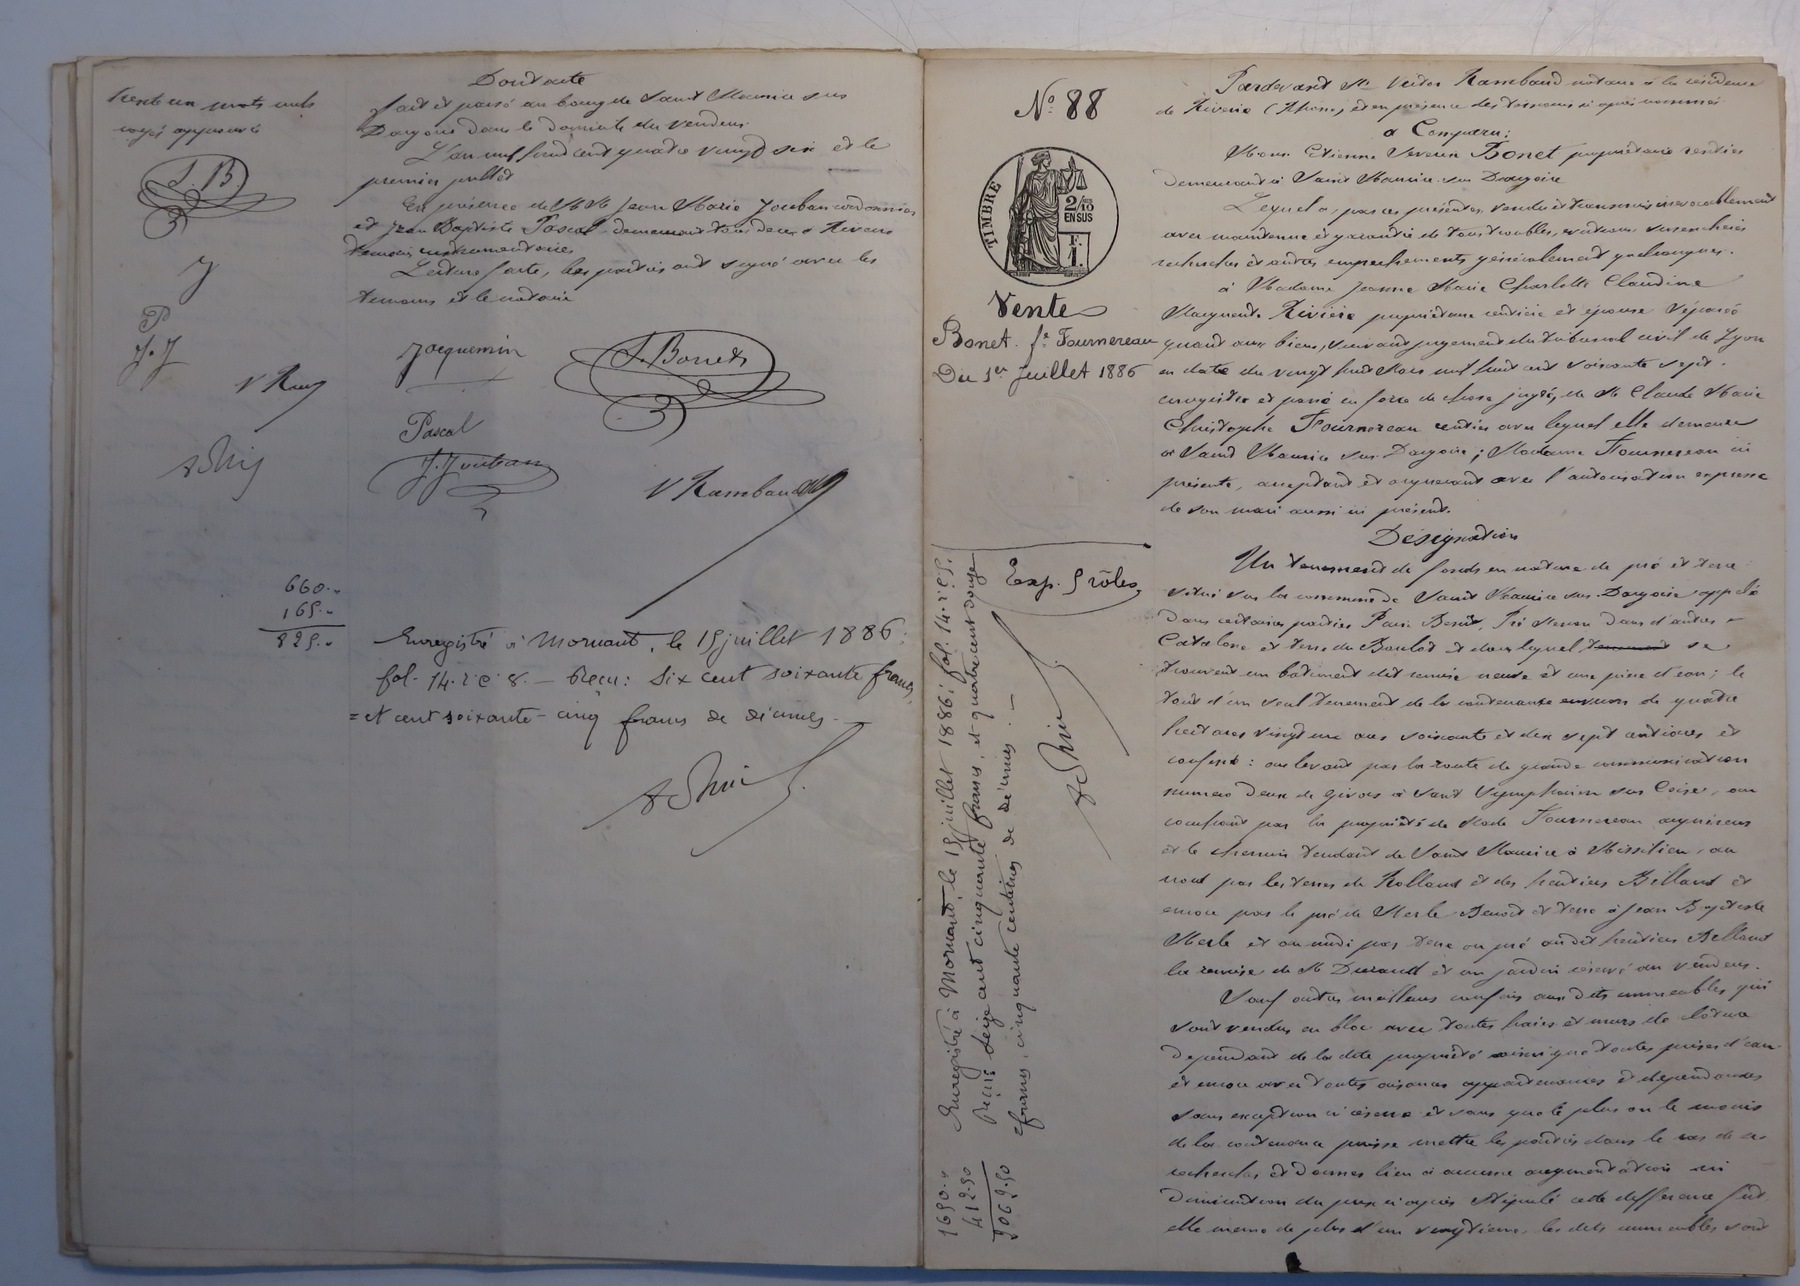 Dont acte
trente un mots nuls
rayés approuvés
fait et passé au bourg de Saint Maurice sur
Dargoire dans le domicile du vendeur
L'an mil huit cent quatre vingt six et le
premier juillet
En présence de MM. Jean Marie Jouban cordonnier
et Jean Baptiste Pascal demeurant tous deux à Riverie
témoins instrumentaires
Lecture faite, les parties ont signé avec les
témoins et le notaire
S. B
J
P
J. J
V Ram
Jacquemin
S. Bonet
Pascal
J. Jouban
V Rambaud
660. "
165. "
825. "
Enregistré à Mornant, le 15 juillet 1886:
fol. 14. r. c. 8. — Reçu: Six cent soixante francs,
= et cent soixante-cinq francs de décimes. —
No. 88
TIMBRE
2/10
EN SUS
F.
1.
Vente
Bonet. fe. Fournereau
Du 1er Juillet 1886
Exp. 5 rôles
Enregistré à Mornant, le 15 juillet 1886; fol. 14. r. c. 9.
Reçu: Seize cent cinquante francs, et quatre cent douze
francs, cinquante centimes de décimes. —
1650. "
412.50
2062.50
Pardevant Me Victor Rambaud notaire à la résidence
de Riverie (Rhône) et en présence des témoins ci après nommés
a Comparu:
Mons. Etienne Séverin Bonet propriétaire rentier
demeurant à Saint Maurice sur Dargoire
Lequel a, par ces présentes, vendu et transmis irrévocablement
avec maintenue et garantie de tous troubles, évictions surenchères
recherches et autres empêchements généralement quelconques.
à Madame Jeanne Marie Charlotte Claudine
Marguerite Rivière propriétaire rentière et épouse séparée
quant aux biens, suivant jugement du tribunal civil de Lyon
en date du vingt huit Mars mil huit cent soixante sept.
enregistré et passé en force de chose jugée, de M. Claude Marie
Christophe Fournereau rentier avec lequel elle demeure
à Saint Maurice sur Dargoire; Madame Fournereau ici
présente, acceptant et acquérant avec l'autorisation expresse
de son mari aussi ici présent.
Désignation
Un tenement de fonds en nature de pré et terre
situé sur la commune de Saint Maurice sur Dargoire appelé
dans certaines parties Pré dans d'autres
et terre du Boulot et dans lequel tenement se
trouvent un bâtiment dit remise neuve et une pièce d'eau; le
tout d'un seul tenement de la contenance environ de quatre
hectares vingt une ares soixante et dix sept centiares et
confiné: au levant par la route de grande communication
numéro deux de Givors à Saint Symphorien sur Coise, au
couchant par la propriété de Made Fournereau acquéreur
et le chemin tendant de Saint Maurice à Missilieu, au
nord par les terres de Rolland et des héritiers Billard et
encore par le pré de Merle Benoit et terre à Jean Baptiste
Merle et au midi par terre ou pré audit héritiers Billard
la remise de M Durand et un jardin réservé au vendeur.
Sauf autres meilleurs confins aux dits immeubles qui
sont vendus en bloc avec toutes haies et murs de clôture
dépendant de la dite propriété ainsi que toutes prises d'eau
et encore avec toutes aisances appartenances et dépendances
sans exception ni réserve et sans que le plus ou le moins
de la contenance puisse mettre les parties dans le cas de se
rechercher et donner lieu à aucune augmentation ni
diminution du prix ci après stipulé cette différence fut
elle même de plus d'un vingtième, les dits immeubles sont